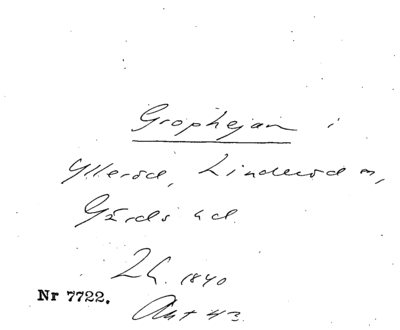 Grophejan i
Ylleröd, Linderöd sn,
Gärds hd.
Lh. 1840
Nr 7722.
Akt 43.